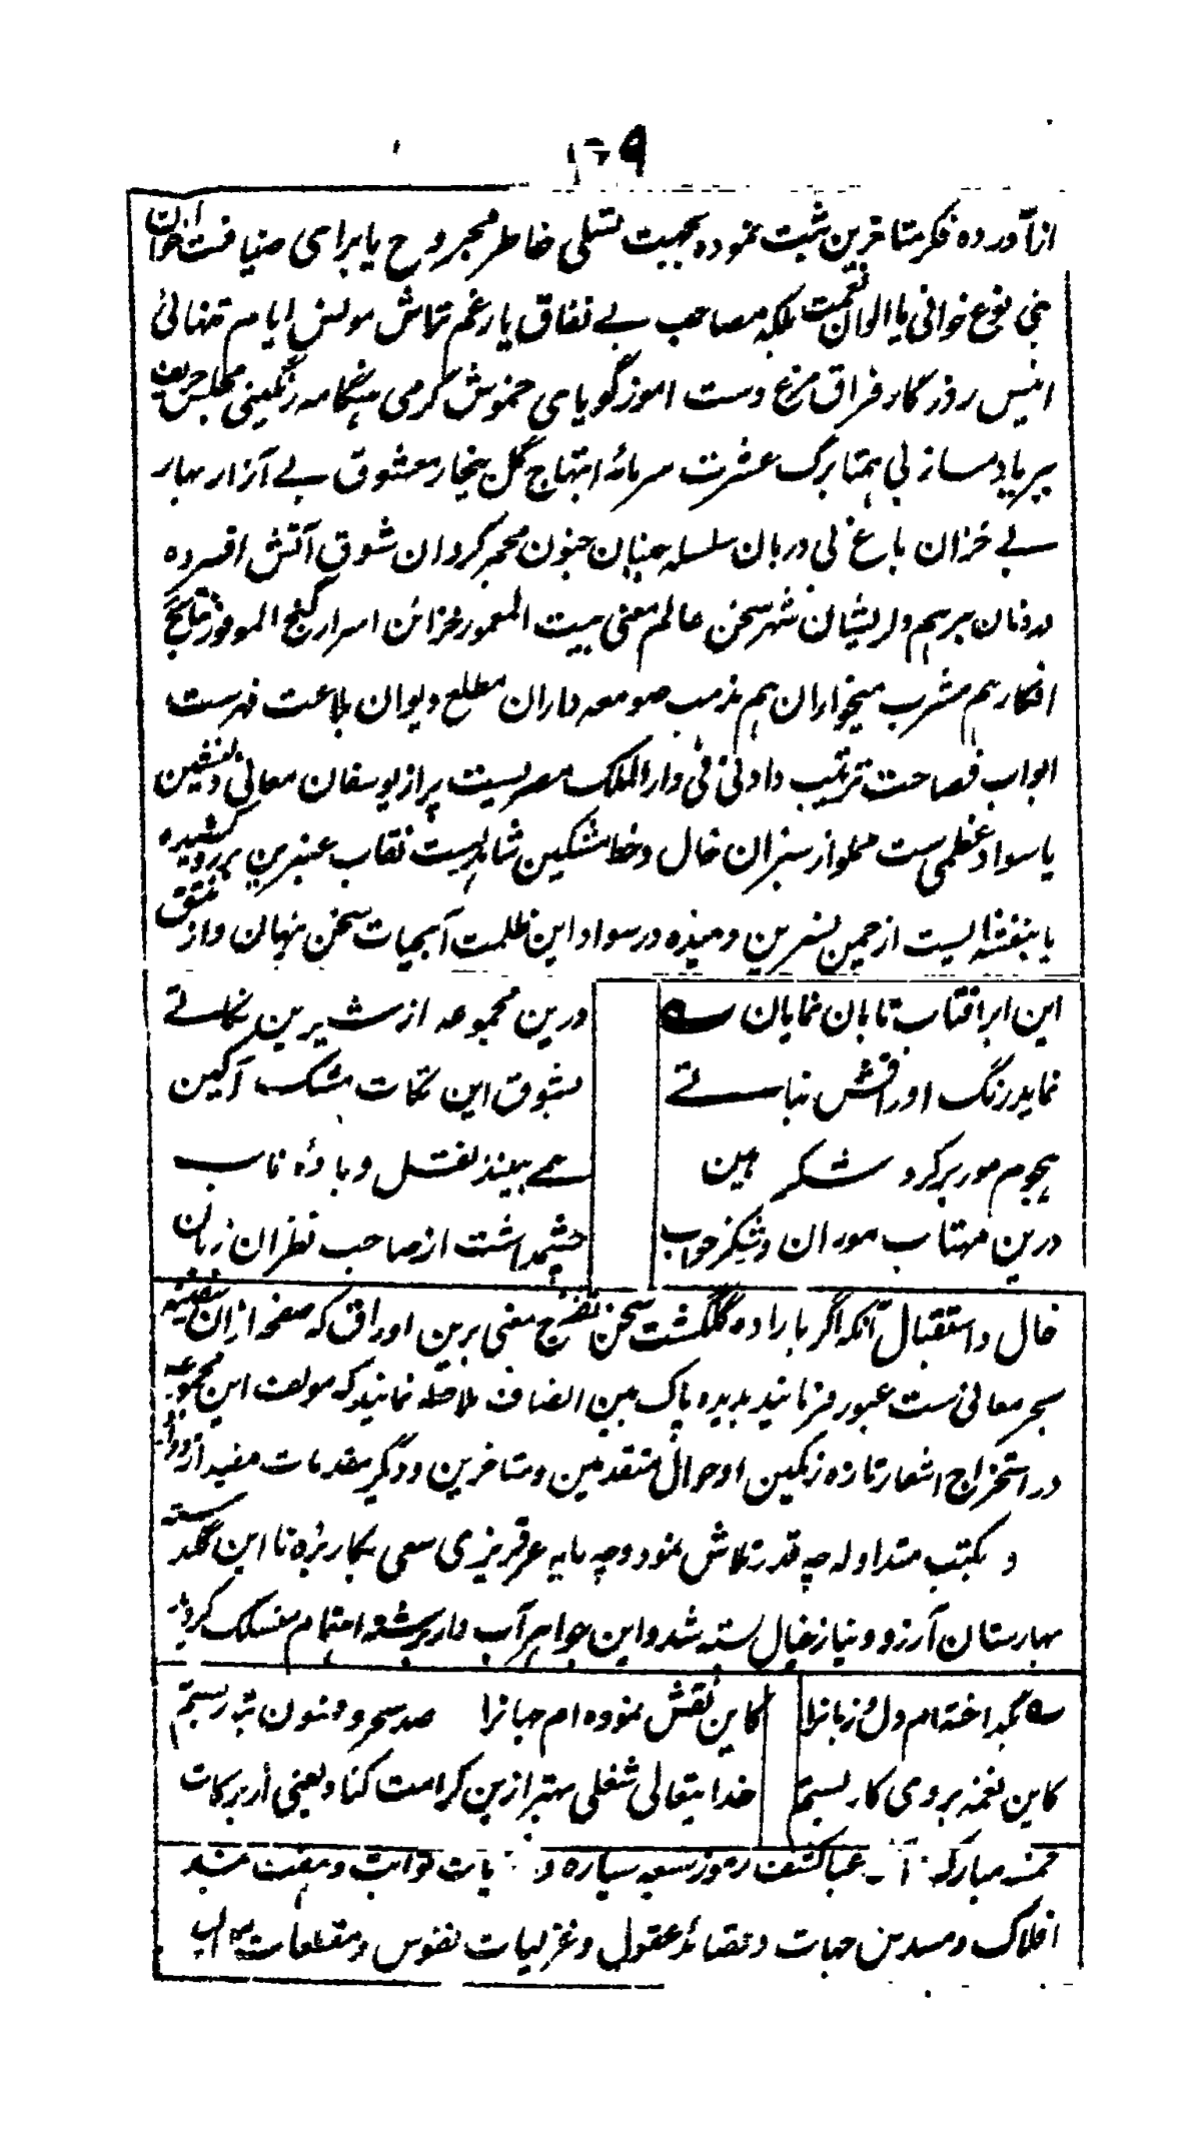 ۱۷۹
ازآورده فکر متاخرین ثبت نموده بجهت تسلی خاطر مجروح یا برای ضیافت اخوان خوان
بنی نوع خوانی با الوان نعمت بلکه مصاحب بے نفاق یار غم تماش مونس ایام تنهائی
انیس روزگار فراق مرغ دست اموز گویای خموش گرمی هنگامه رنگینی مجلس حریف
پیر یا دمساز بی همتا برگ عشرت سرمائه ابتهاج گل بیخار معشوق بے آزار بهار
بے خزان باغ بی دربان سلسله جنبان جنون مجمر گردان شوق آتش افسرده
درونان برهم و پریشان شهر سخن عالم معنی بیت المعمور خزائن اسرار گنج الموفور نتائج
افکار هم مشرب میخواران هم مذهب صومعه داران مطلع دیوان بلاغت فهرست
ابواب فصاحت ترتیب داد نی نی دار الملک مصریست پر از یوسفان معانی دلنشین
یا سواد عظمی ست مملو از سبزان خال و خط مشکین شاهدیست نقاب عنبرین بر رو کشیده
یا بنفشه ایست از چمن نسرین دمیده در سواد این ظلمت آبحیات سخن پنهان و از شقق
این ابر افتاب تابان نمایان ـه درین مجموعه از شیرین نکاتے
نماید رنگ اوراقش نباتے بشوق این نکات مشک آگین
هجوم مور بر گرد شکر بین همے بینند نقل و باده ناب
درین مهتاب موران و شکر خواب چشمداشت از صاحب نظران زبان
خال و استقبال آنکه اگر باراده گلگشت سخن تفرج معنی برین اوراق که صفحه ازان سفینه
سحر معانی ست عبور فرمایند بدیده پاک بین انصاف ملاحظه نمایند که مولف این مجموعه
در استخراج اشعار تازه رنگین احوال متقدمین و متاخرین و دیگر مقدمات مفید از
و بکتب متداوله چه قدر تلاش نمود و چه مایه عرقریزی سعی بکار برده تا این گلدسته
بهارستان آرزو و نیاز خیال بسته شد و این جواهر آب دار برشته اهتمام منسلک گردید
ـه بگداخته ام دل و زبانرا کاین نقش نموده ام جهانرا صد سحر و فسون بته رسبتم
کاین نغمه بروی کار بستم خدایتعالی شغلی بهتر ازین کرامت کناد یعنی از برکات
خمسه مبارکه عبا کشف رموز سبعه سیاره و ثوابت و هفت بند
افلاک و مسدس جهات و قصائد عقول و غزلیات نفوس و مقطعات